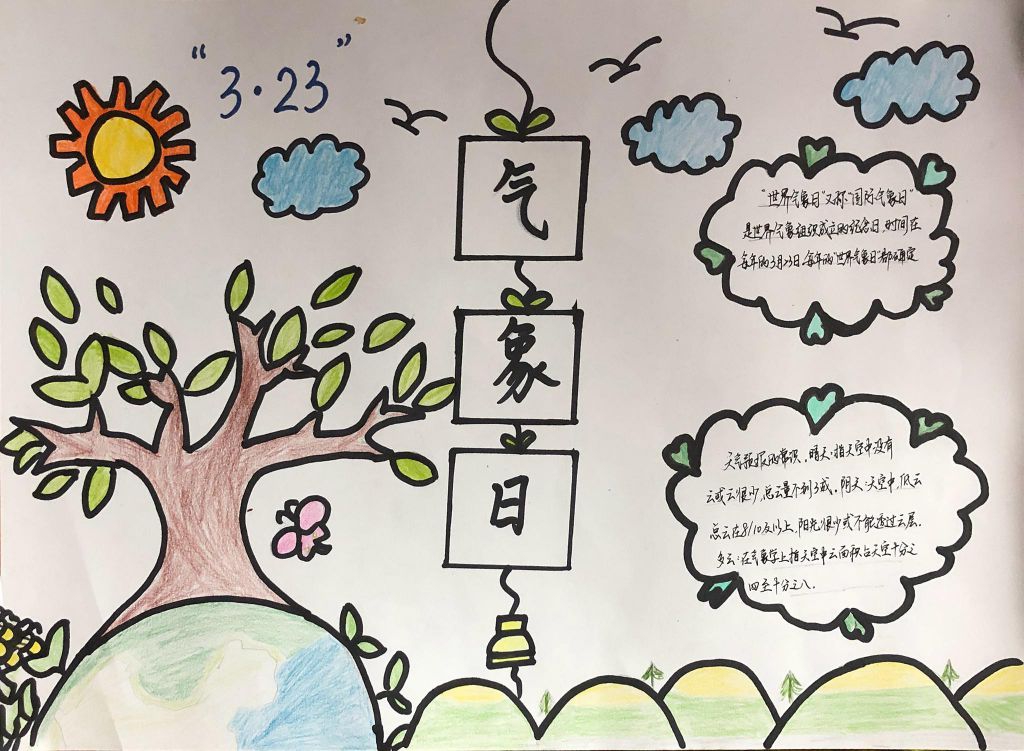 “3·23”
气
象
日
“世界气象日”又称“国际气象日”
是世界气象组织成立的纪念日，时间在
每年的3月23日，每年的“世界气象日”都确定
天气预报的常识。晴天：指天空中没有
云或云很少，总云量不到3成。阴天：天空中，低云
总云在8/10及以上，阳光很少或不能透过云层。
多云：在气象学上指天空中云面积占天空十分之
四至十分之八。